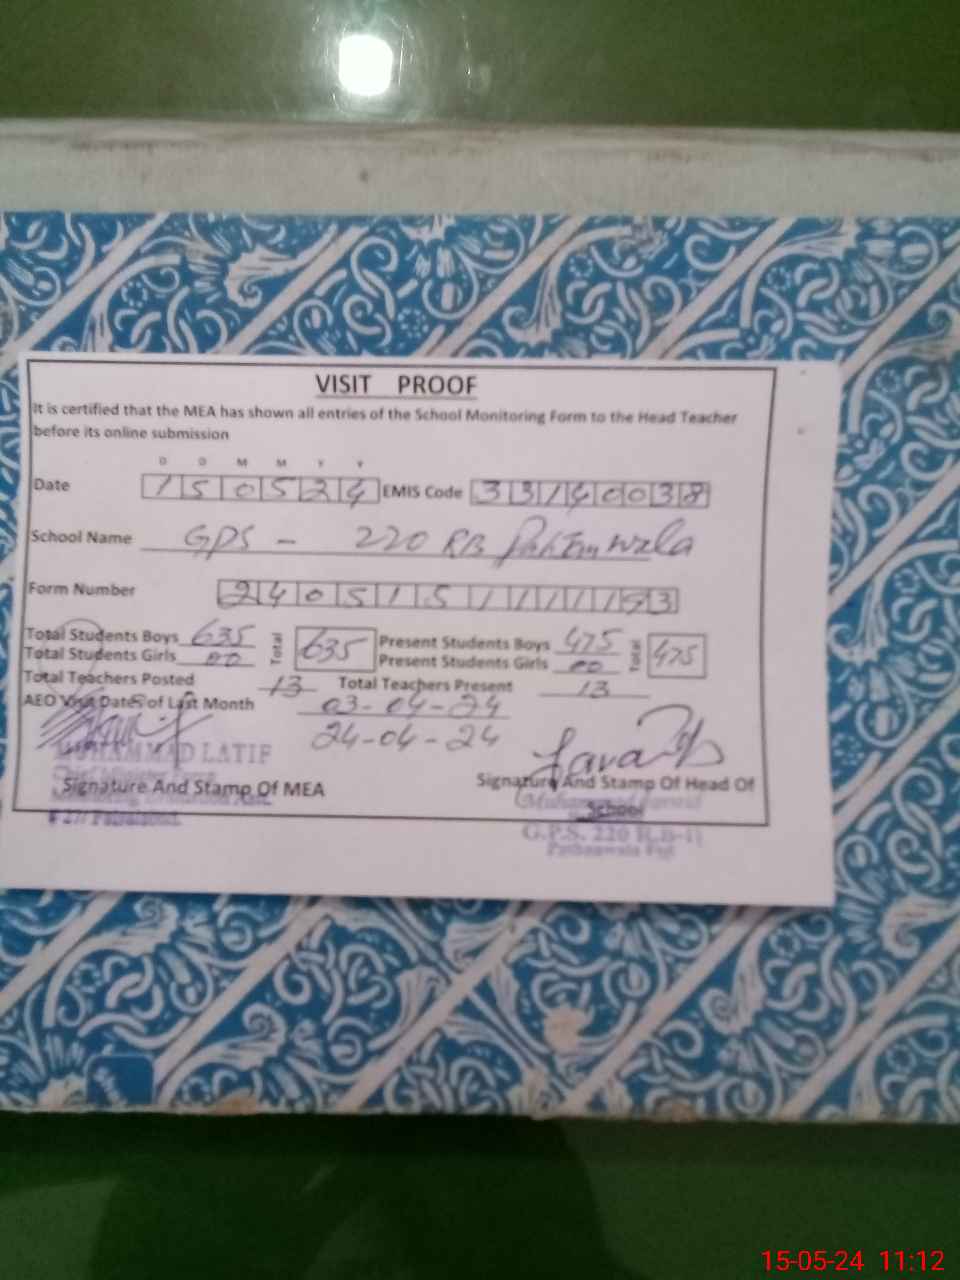 VISIT PROOF
It is certified that the MEA has shown all entries of the School Monitoring Form to the Head Teacher
before its online submission
D D M M Y Y
Date 150524 EMIS Code 33140038
School Name GPS - 220 RB
Form Number 240515111193
Total Students Boys 635 Total 635 Present Students Boys 475 Total 475
Total Students Girls 00 Present Students Girls 00
Total Teachers Posted 13 Total Teachers Present 13
AEO Visit Dates of Last Month 03-04-24
24-04-24
MUHAMMAD LATIF
Signature And Stamp Of MEA
Signature And Stamp Of Head Of
School
G.P.S. 220 R.B-
15-05-24 11:12